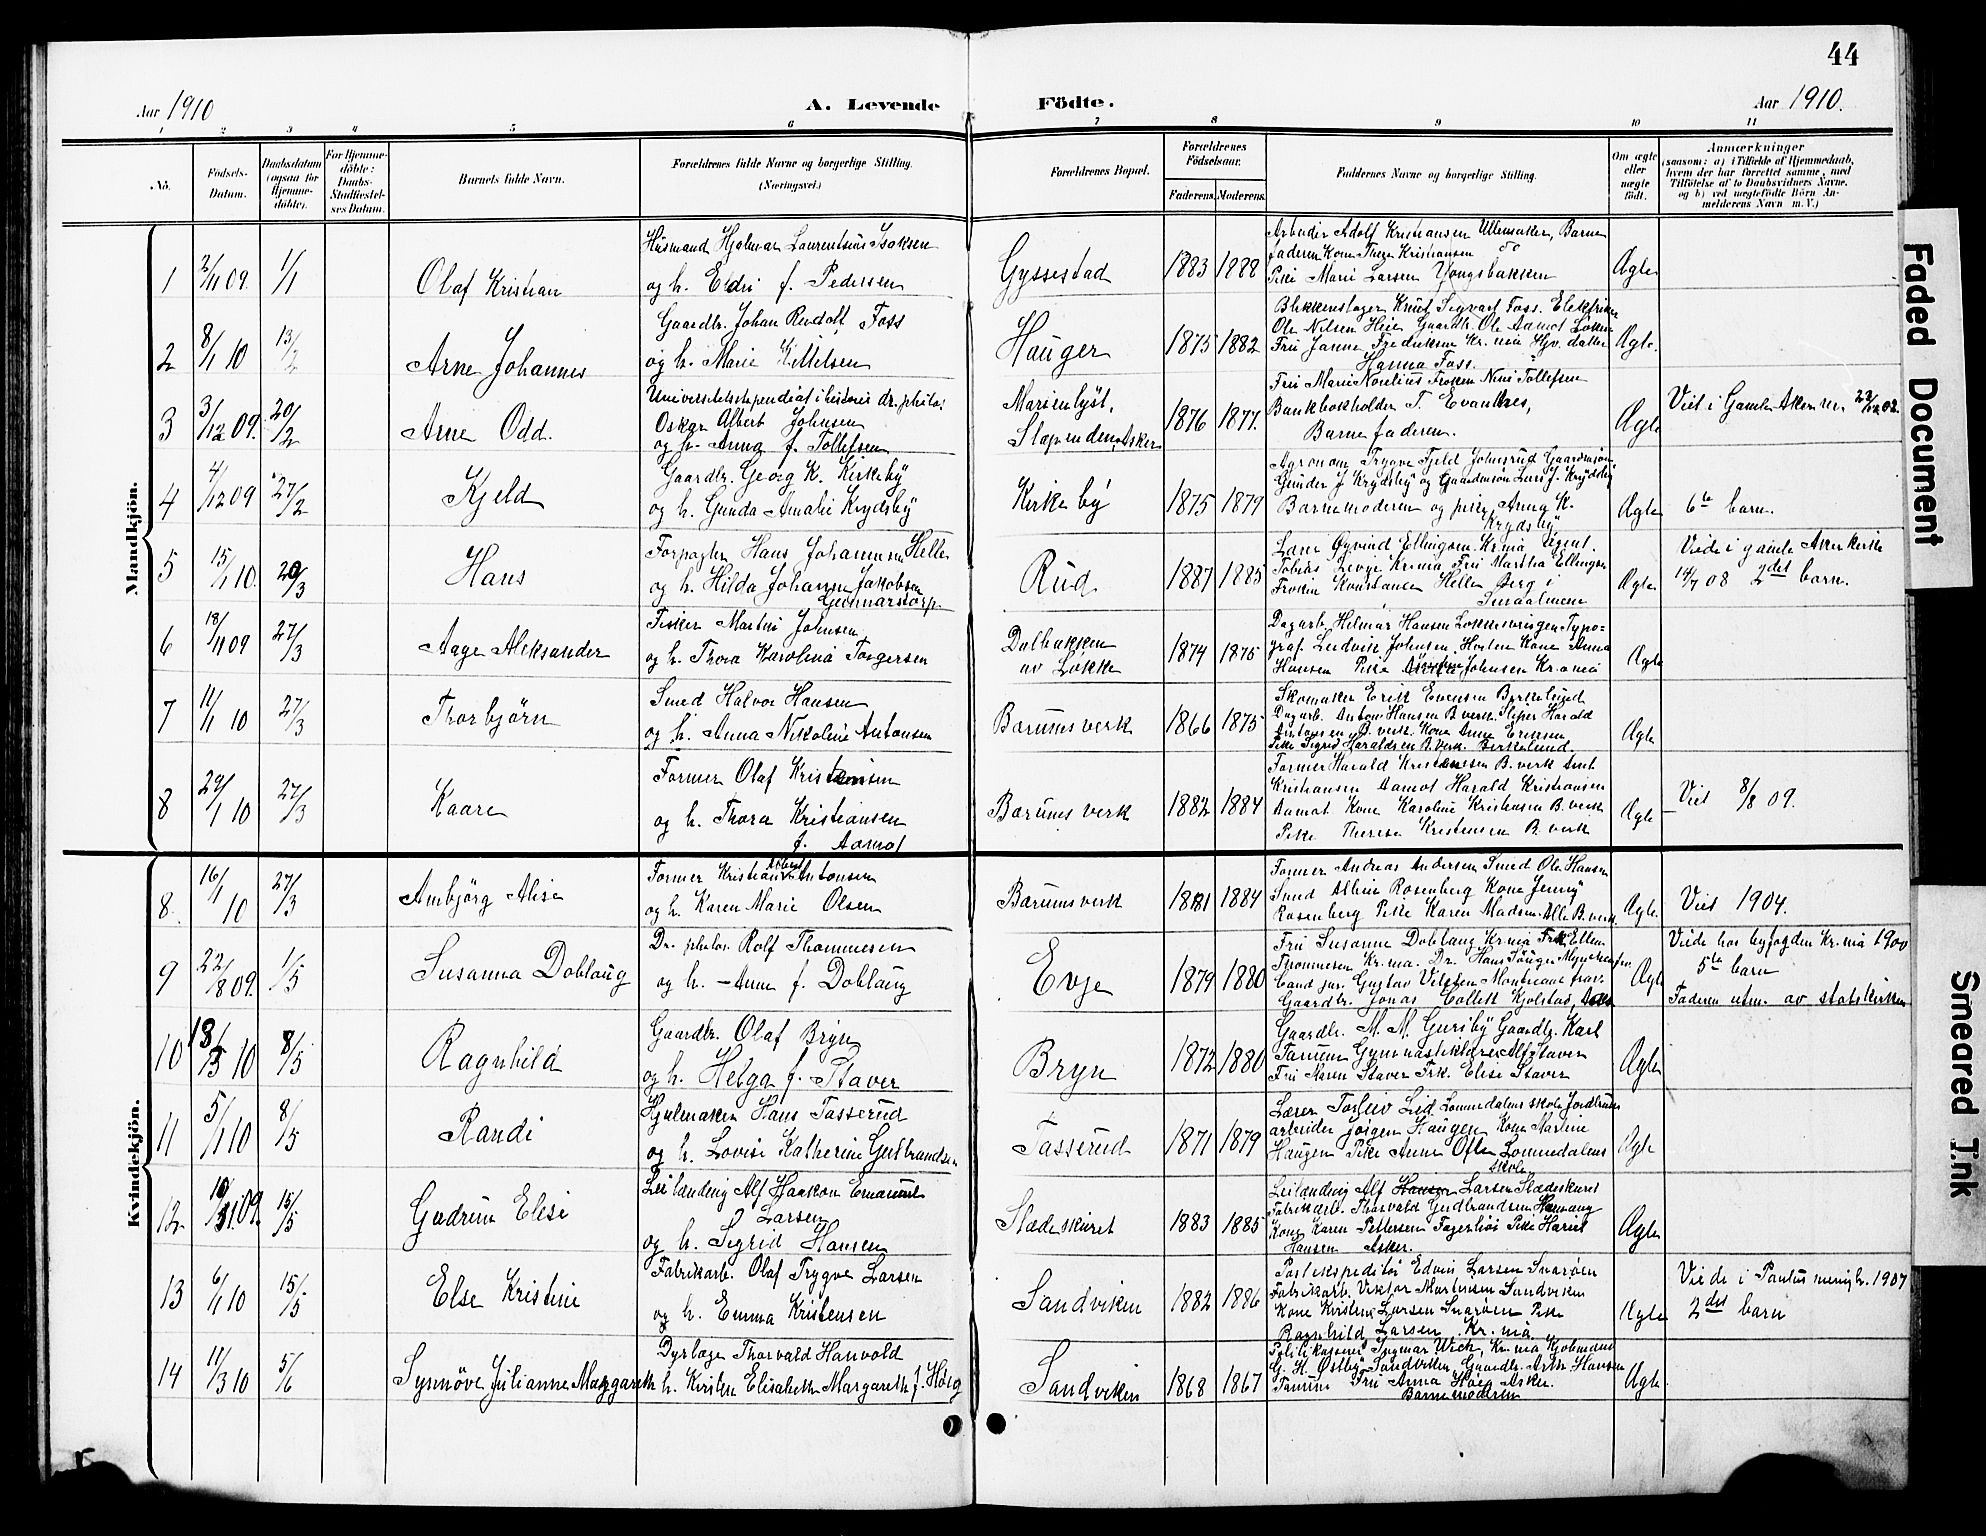 44
Aar 1910
A. Levende Födte.
Aar 1910.
1 2 3 4 5 6 7 8 9 10 11
No.
Födsels-Datum.
Daabsdatum (ogsaa for Hjemme-döbte).
For Hjemme-döbte: Daabs-Stadfæstel-ses Datum.
Barnets fulde Navn.
Forældrenes fulde Navne og borgerlige Stilling. (Næringsvei.)
Forældrenes Bopæl.
Forældrenes Födselsaar.
Faderens. Moderens.
Faddernes Navne og borgerlige Stilling.
Om ægte eller uægte födt.
Anmærkninger
(saasom: a) i Tilfælde af Hjemmedaab,
hvem der har forrettet samme, med
Tilföielse af to Daabsvidners Navne,
og b) ved uægtefödte Börn An-
melderens Navn m. V.)
Mandkjön.
1 2/11 09. 1/1 Olaf Kristian
Husmand Hjalmar Laurentsius Isaksen
og h. Eldri f. Pedersen
Gyssestad 1883 1888
Arbeider Adolf Kristiansen Ullensaker, Barne
faderen Kone Thea Kristiansen do
Pike Marie Larsen
Ægte
2 8/1 10 13/2 Arne Johannes
Gaardbr. Johan Rudolf Foss
og h. Marie Kittelsen
Hauger 1875 1882
Blikkenslager Knut Sigvart Foss. Elektriker
Ole Nilsen Heie Gaardbr. Ole Aamot Løken
Fru Janna Fredriksen Kr.nia Hjv. datter
Hanna Foss.
Ægte.
3 3/12 09. 20/2 Arne Odd.
Universitetsstipendiat i historie dr. philos.
Oskar Albert Johnsen
og h. Anna f. Tollefsen
Marienlyst,
Slependen, Asker
1876 1877.
Fru Marie Norelius Frøken Nini Tollefsen
Bankbokholder T. Evankes,
Barnefaderen.
Ægte
Viet i Gamle Aker
4 4/12 09 27/2 Kjeld
Gaardbr. Georg K. Kirkeby
og h. Gunda Amalie Krydsby
Kirkeby 1875 1879
Agronom Trygve Fjeld Johnsrud Gaardmandssøn
Gunder J. Krydsby og Gaardmandssøn Lars J. Krydsby
Barnemoderen og pike Anna K.
Krydsby
Ægte
6te barn.
5 15/1 10. 20/3 Hans
Forpagter Hans Johannesen Helle
og h. Hilda Johanne Jakobsen
Gunnarstorp.
Rud 1887 1885
Øyvind Ellingsen Kr.nia Agent.
Tobias Kr.nia Fru Martha Ellingsen
Frøken Konstance Helle Berg i
Smaalenene
Ægte
Viede i gamle Aker kirke
14/7 08 2det barn.
6 18/11 09 27/3 Aage Aleksander
Fisker Martin Johnsen
og h. Thora Karolina Torgersen
Dalbakken
av Løkke
1874 1875
Dagarb. Hilmar Hansen Løkkesvingen Typo-
graf Ludvig Johnsen Horten Kone Anna
Hansen Pike Johnsen Kr.a nia
Ægte
7 11/1 10 27/3 Thorbjørn
Smed Halvor Hansen
og h. Anna Nikoline Antonsen
Bærums verk 1866 1875
Skomaker Erik Evensen Byrkelund
Dagarb. Anton Hansen B. verk. Sliper Harald
Antonsen B. verk. Kone Anne Eriksen
Pike Sigrid Haraldsen B. verk. Birkelund.
Ægte
8 29/1 10 27/3 Kaare
Former Olaf Kristensen
og h. Thora Kristiansen
f. Aamot
Bærums verk 1882 1884
Former Harald Kristensen B. verk Smed
Kristiansen Aamot Harald Kristiansen
Aamot Kone Karoline Kristensen B. verk
Pike Therese Kristensen B. verk
Ægte
Viet 8/8 09.
Kvindekjön.
8. 16/1 10 27/3 Aasbjørg Alise
Former Kristian Albert Antonsen
og h. Karen Marie Olsen
Bærums verk 1881 1884
Former Andreas Andersen Smed Ole Hansen
Smed Albin Rosenberg Kone Jenny
Rosenberg Pike Karen Madsen. Alle B. verk.
Ægte.
Viet 1904.
9 22/8 09. 1/5 Susanna Doblaug
Dr. philos. Rolf Thommesen
og h. Anne f. Doblaug
Evje 1879 1880
Fru Susanne Doblaug Kr.nia Frk. Ellen
Thommesen Kr.nia. Dr. Hans
Cand. jur. Gustav
Gaardbr. Jonas Collett Kjølstad,
Ægte
Viede hos byfogden Kr.nia 1900
5te barn
Faderen utm. av statskirken
10 13/3 10 8/5 Ragnhild
Gaardbr. Olaf Bryn
og h. Helga f. Staver
Bryn 1872 1880
Gaardbr. M. M. Gursby Gaardbr. Karl
Tanum Gymnastiklærer Alf Staver
Fru Maren Staver Frk. Elise Staver
Ægte
11 5/1 10 8/5 Randi
Hjulmaker Hans Tasserud
og h. Lovise Katherine Gulbrandsen
Tasserud 1871 1879
Lærer Torleiv Lid Lommedalens skole Jordbruks
arbeider Jørgen Haugen Kone Martine
Haugen Pike Anne Ofte Lommedalens
skole
Ægte
12 10/11 09. 15/5 Gudrun Elise
Leilænding Alf Haakon Emanuel
Larsen
og h. Sigrid Hansen
Slædeskuret 1883 1885
Leilænding Alf Hansen Larsen Slædeskuret
Fabrikarb. Thorvald Gudbrandsen Hamang
Kone Karen Pettersen Fagerhøi Pike Harriet
Hansen Asker.
Ægte
13 6/1 10 15/5 Else Kristine
Fabrikarb. Olaf Trygve Larsen
og h. Emma Kristensen
Sandviken 1882 1886
Postekspeditør Edvin Larsen Snarøen
Fabrikarb. Viktor Martinsen Sandviken
Kone Kristine Larsen Snarøen Pike
Ragnhild Larsen Kr.nia.
Ægte
Viede i Paulus menigh. 1907
2det barn
14 11/3 10 5/6 Synnøve Julianne Margareth
Dyrlæge Thorvald Hanvold
h. Kirsten Elisabeth Margareth f. Høeg
Sandviken 1868 1867
Politikasserer Ingmar Wick, Kr.nia Kjøbmand
G. H. Østby Sandviken, Gaardbr. Hansen
Tanum Fru Anna Høeg Asker.
Barnemoderen
Ægte
Faded Document
Smeared Ink